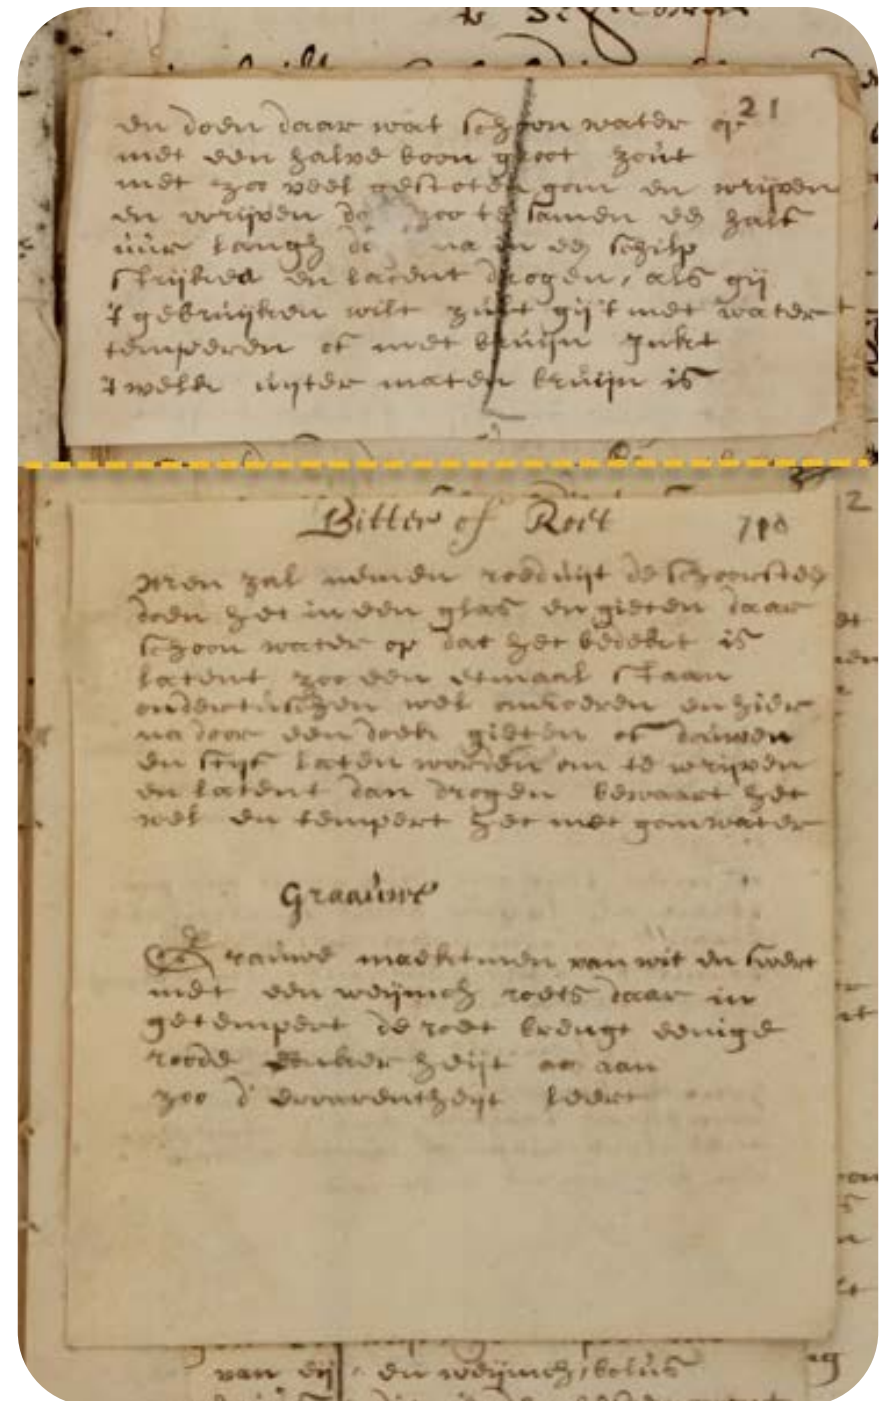 21
en doen daar wat schoon water op
met een halve boon groot zout
met zoo veel gestoten gom en wrijven
en wrijven zoo te samen een half
uur langh na in een schilp
strijken en latent drogen, als gij
't gebruijken wilt zult gij 't met water
temperen of met bruijn Inkt
't welk uijter maten bruijn is
2
Bitter of Roet
Men zal nemen roed uijt de schoorstee
doen het in een glas en gieten daar
schoon water op dat het bedekt is
latent zoo een etmaal staan
ondertusschen wel omroeren en hier
na door een doek gieten of douwen
en stijf laten worden om te wrijven
en latent dan drogen bewaart het
wel en tempert het met gomwater
Graauwe
Grauwe maekt men van wit en swert
met een weijnich roets daar in
getempert de roet brengt eenige
roode heijt aan
zoo d' ervarentheijt leert
van en weijnich bolus